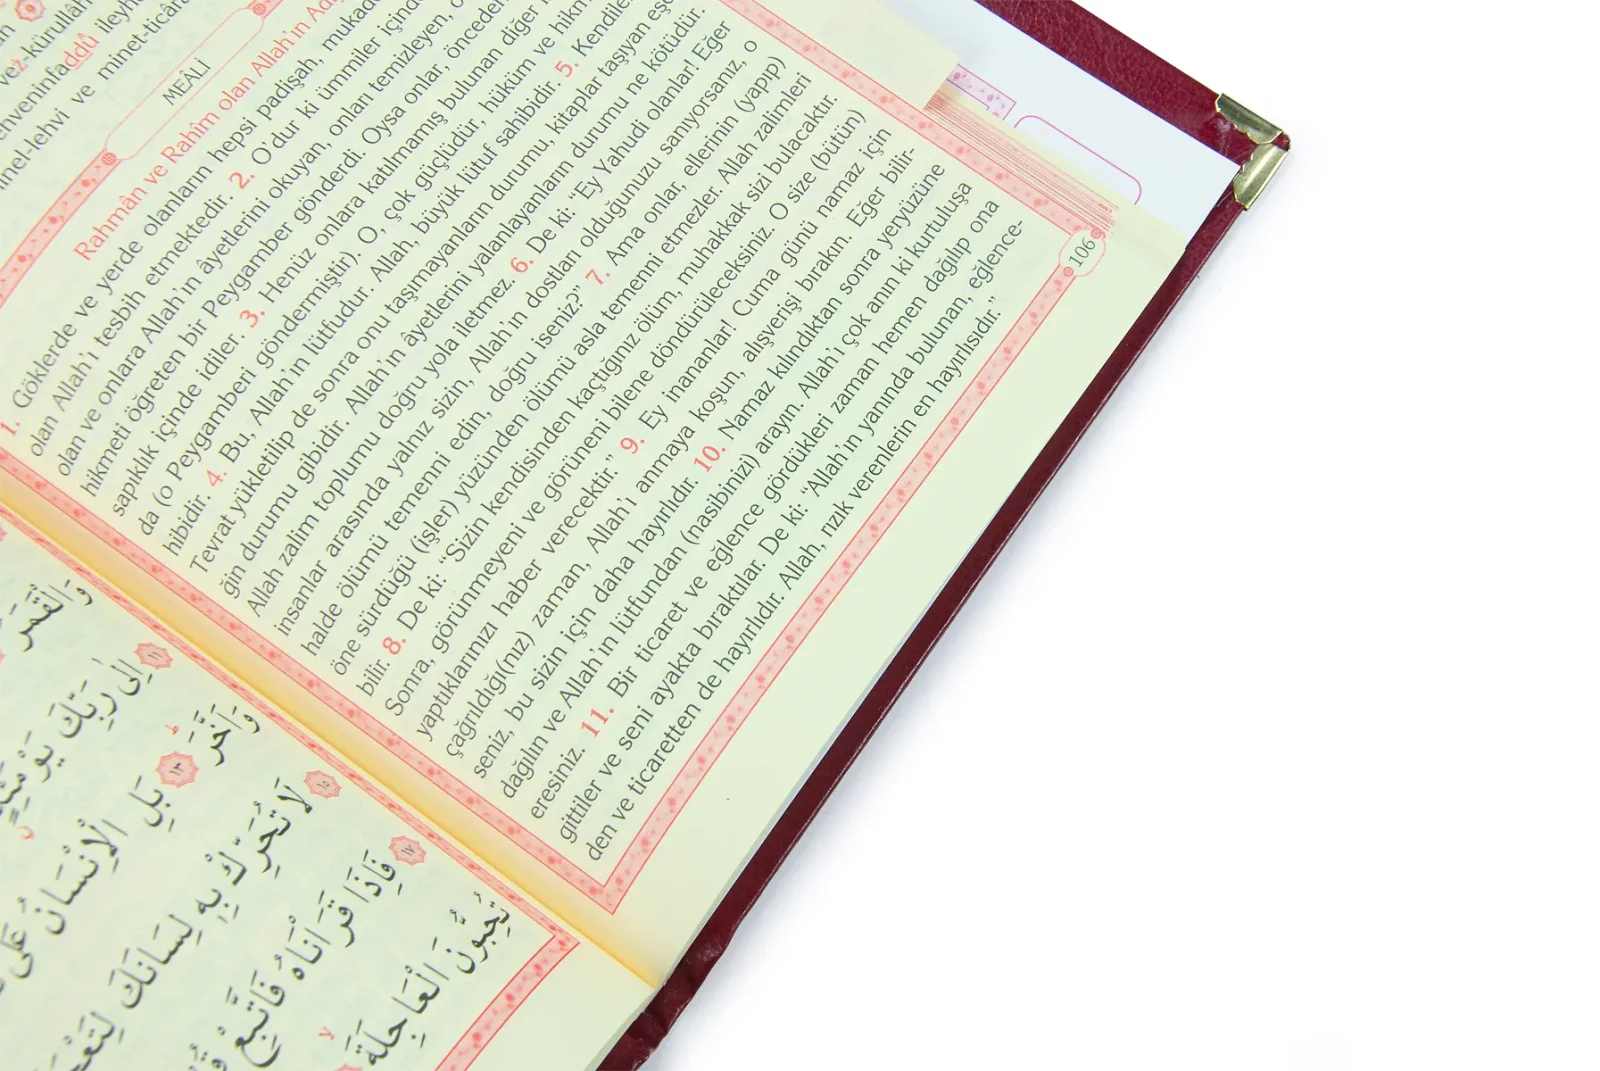 minet-ticâra
MEÂLİ
Rahmân ve Rahîm olan Allah'ın
1. Göklerde ve yerde olanların hepsi padişah,
olan Allah'ı tesbih etmektedir. 2. O'dur ki ümmiler içinde
olan ve onlara Allah'ın âyetlerini okuyan, onları temizleyen,
hikmeti öğreten bir Peygamber gönderdi. Oysa onlar, önceden
sapıklık içinde idiler. 3. Henüz onlara katılmamış bulunan diğer
da (o Peygamberi göndermiştir). O, çok güçlüdür, hüküm ve
hibidir. 4. Bu, Allah'ın lütfudur. Allah, büyük lütuf sahibidir. 5.
Tevrat yükletilip de sonra onu taşımayanların durumu, kitaplar taşıyan eşe-
ğin durumu gibidir. Allah'ın âyetlerini yalanlayanların durumu ne kötüdür.
Allah zalim toplumu doğru yola iletmez. 6. De ki: "Ey Yahudi olanlar! Eğer
insanlar arasında yalnız sizin, Allah'ın dostları olduğunuzu sanıyorsanız, o
halde ölümü temenni edin, doğru iseniz?" 7. Ama onlar, ellerinin (yapıp)
öne sürdüğü (işler) yüzünden ölümü asla temenni etmezler. Allah zalimleri
bilir. 8. De ki: "Sizin kendisinden kaçtığınız ölüm, muhakkak sizi bulacaktır.
Sonra, görünmeyeni ve görüneni bilene döndürüleceksiniz. O size (bütün)
yaptıklarınızı haber verecektir." 9. Ey inananlar! Cuma günü namaz için
çağrıldığı(nız) zaman, Allah'ı anmaya koşun, alışverişi bırakın. Eğer bilir-
seniz, bu sizin için daha hayırlıdır. 10. Namaz kılındıktan sonra yeryüzüne
dağılın ve Allah'ın lütfundan (nasibinizi) arayın. Allah'ı çok anın ki kurtuluşa
eresiniz. 11. Bir ticaret ve eğlence gördükleri zaman hemen dağılıp ona
gittiler ve seni ayakta bıraktılar. De ki: "Allah'ın yanında bulunan, eğlence-
den ve ticaretten de hayırlıdır. Allah, rızık verenlerin en hayırlısıdır."
106
وَالْقَمَرُ
اِلٰى رَبِّكَ يَوْمَئِذٍ
وَاَخَّرَ ﴿١٣﴾ بَلِ الْاِنْسَانُ عَلٰى
﴿١٥﴾ لَا تُحَرِّكْ بِهٖ لِسَانَكَ لِتَعْجَلَ
﴿١٧﴾ فَاِذَا قَرَاْنَاهُ فَاتَّبِعْ
تُحِبُّونَ الْعَاجِلَةَ